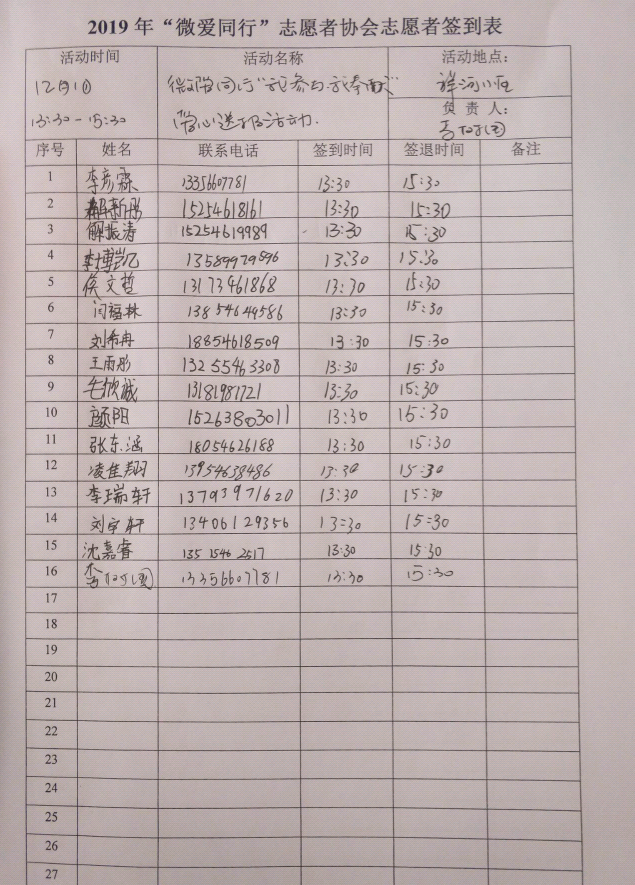 2019 年“微爱同行”志愿者协会志愿者签到表
活动时间 活动名称 活动地点：
12月1日 微爱同行“我参与·我奉献” 祥河小区
13:30-15:30 爱心送报活动. 负 责 人：
序号 姓名 联系电话 签到时间 签退时间 备注
1 李彦霖 13356607781 13:30 15:30
2 15254618161 13:30 15:30
3 解振涛 15254619989 13:30 15:30
4 李博凯 13589979896 13:30 15:30
5 侯文哲 13173461868 13:30 15:30
6 闫福林 13854649586 13:30 15:30
7 刘希冉 18854618509 13:30 15:30
8 王雨彤 13255463308 13:30 15:30
9 毛欣诚 13181981721 13:30 15:30
10 颜阳 15263803011 13:30 15:30
11 张东涵 18054626188 13:30 15:30
12 凌佳翔 13954638486 13:30 15:30
13 李瑞轩 13793971620 13:30 15:30
14 刘宇轩 13406129356 13:30 15:30
15 沈嘉睿 13515462517 13:30 15:30
16 13356607781 13:30 15:30
17
18
19
20
21
22
23
24
25
26
27